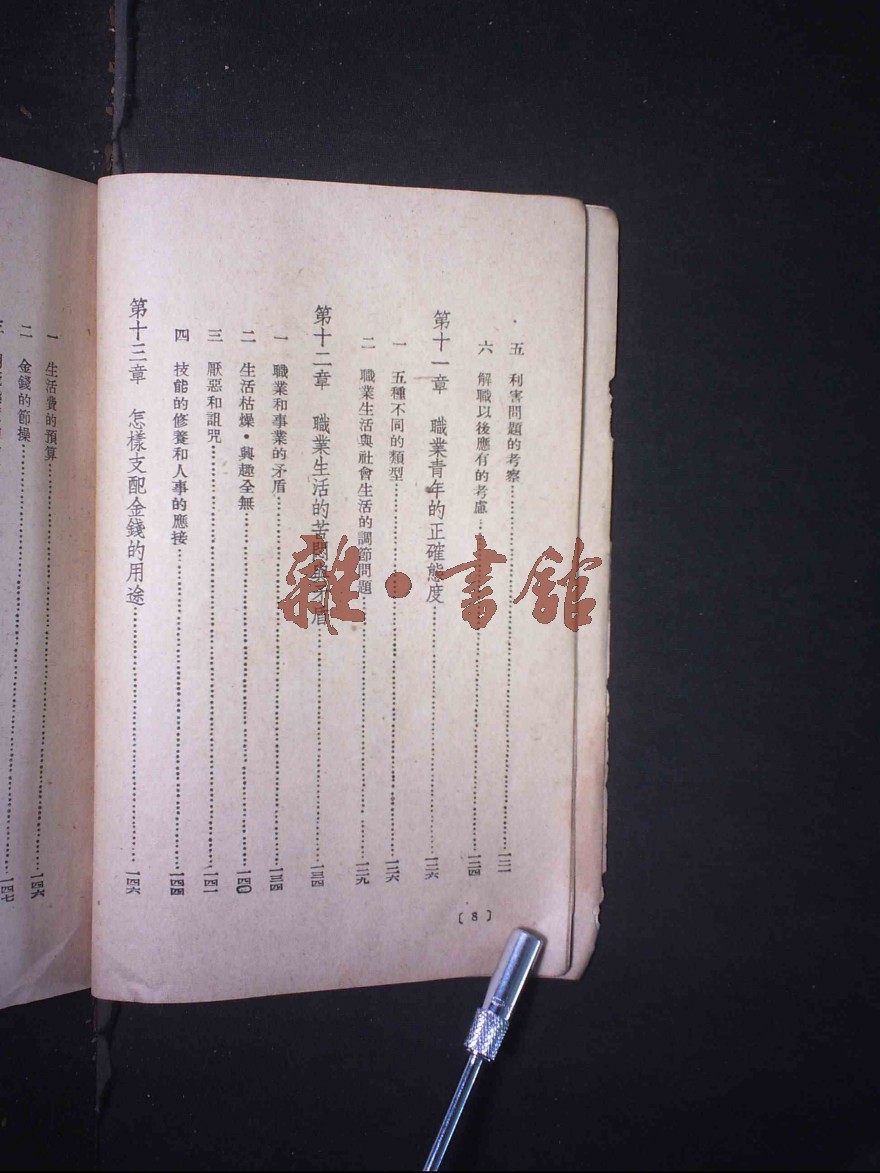 五　利害問題的考察……一二一
六　解職以後應有的考慮……一二四
第十一章　職業青年的正確態度……一二六
一　五種不同的類型……一二六
二　職業生活與社會生活的調節問題……一二九
第十二章　職業生活的苦悶與矛盾……一三四
一　職業和事業的矛盾……一三四
二　生活枯燥・興趣全無……一四〇
三　厭惡和詛咒……一四一
四　技能的修養和人事的應接……一四四
第十三章　怎樣支配金錢的用途……一四六
〔8〕
一　生活費的預算……一四六
二　金錢的節操……一四七
三
雜・書館